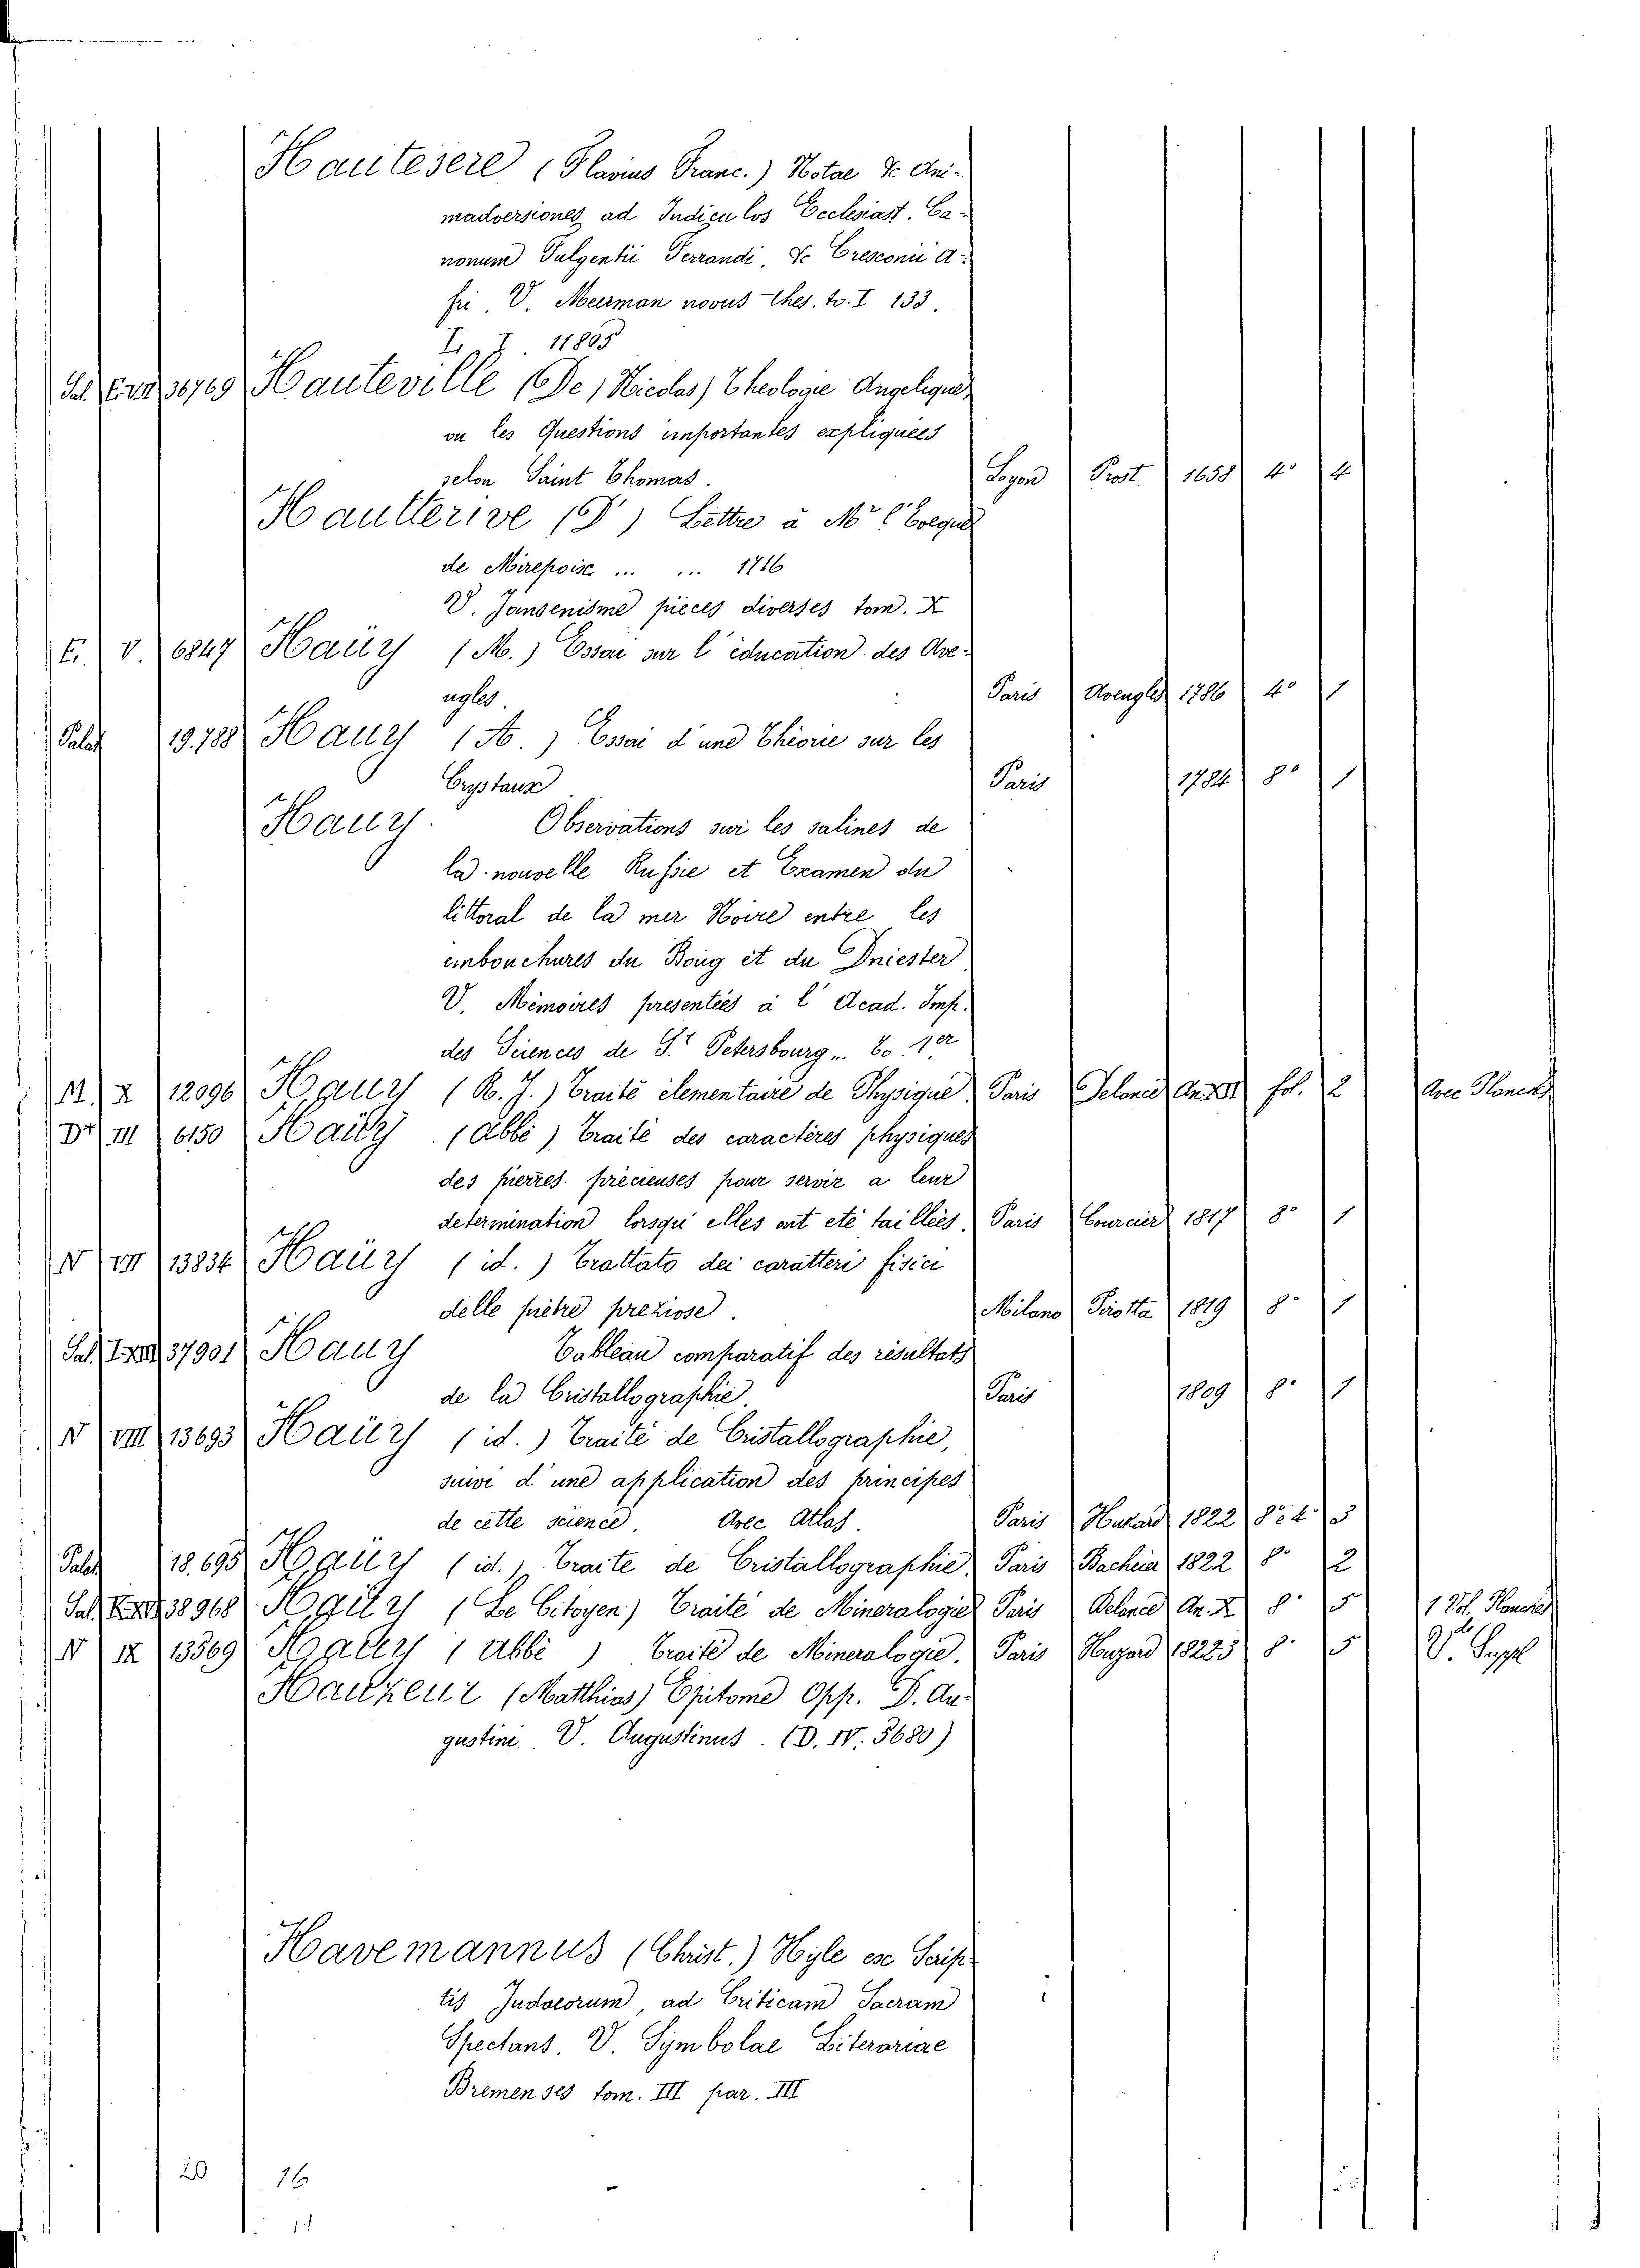 Hautesere (Flavius Franc.) Notae & Ani-
madversiones ad Indiculos Ecclesiast. Ca-
nonum Fulgentii Ferrandi, & Cresconii A-
fri. V. Meerman novus Thes. to. I 133.
I. I. 11805
Hauteville (De, Nicolas) Theologie Angelique,
ou les Questions importantes expliquées
selon Saint Thomas. Lyon Prost. 1658 4º 4
Hautterive (D') Lettre à Mr l'Eveque
de Mirepoix ... ... 1716
V. Jansenisme pieces diverses tom. X
E. V. 6247 Haüy (M.) Essai sur l'éducation des Ave-
ugles. Paris Aveugles 1786 4º 1
Palat 19.788 Hauy (A.) Essai d'une Théorie sur les
Crystaux Paris 1784 8º 1
Hauy. Observations sur les salines de
la nouvelle Russie et Examen du
littoral de la mer Noire entre les
embouchures du Boug et du Dniester
V. Mémoires presentées à l'Acad. Imp.
des Sciences de St Petersbourg .. to. 1er
M. X 12096 Haüy (R. J.) Traité élementaire de Physique Paris Delance An XII fol. 2 Avec Planches
Dr III 6150 Haüy. (Abbé) Traité des caractères physiques
des pierres précieuses pour servir a leur
determination lorsqu'elles ont eté taillées. Paris Courcier 1817 8º 1
N VII 13834 Haüy (id.) Trattato dei caratteri fisici
delle pietre preziose. Milano Pirotta 1819 8º 1
37901 Hauy Tableau comparatif des résultats
de la Cristallographie. Paris 1809 8º 1
N VIII 13693 Haüy (id.) Traité de Cristallographie,
suivi d'une application des principes
de cette science. Avec Atlas. Paris Huzard 1822 8º 4º 3
Palat 18.695 Haüy (id.) Traite de Cristallographie. Paris Bachelier 1822 8º 2
38968 Haüy (Le Citoyen) Traité de Mineralogie Paris Delance An. X 8º 5 1 Vol. Planches
N IX 13569 Haüy (Abbé) Traité de Mineralogie. Paris Huzard 18223 8º 5 V. Suppl
Hauzeur (Matthias) Epitome Opp. D. Au-
gustini. V. Augustinus. (D. IV. 3680)
Havemannus (Christ.) Hyle ex Scrip-
tis Judaeorum, ad Criticam Sacram
Spectans. V. Symbolae Literariae
Bremenses tom. III par. III
20 16